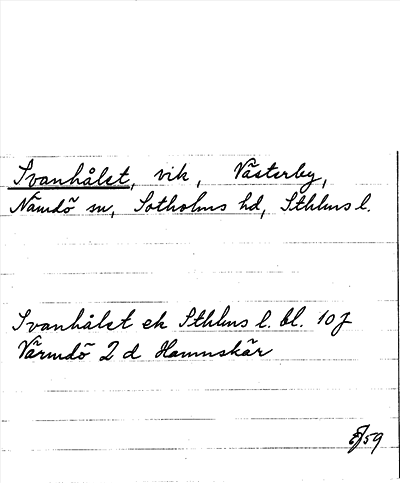 Svanhålet, vik, Västerby,
Nämdö sn, Sotholms hd, Sthlms l.
Svanhålet ek Sthlms l. bl. 10 J
Värmdö 2 d Hamnskär
/59